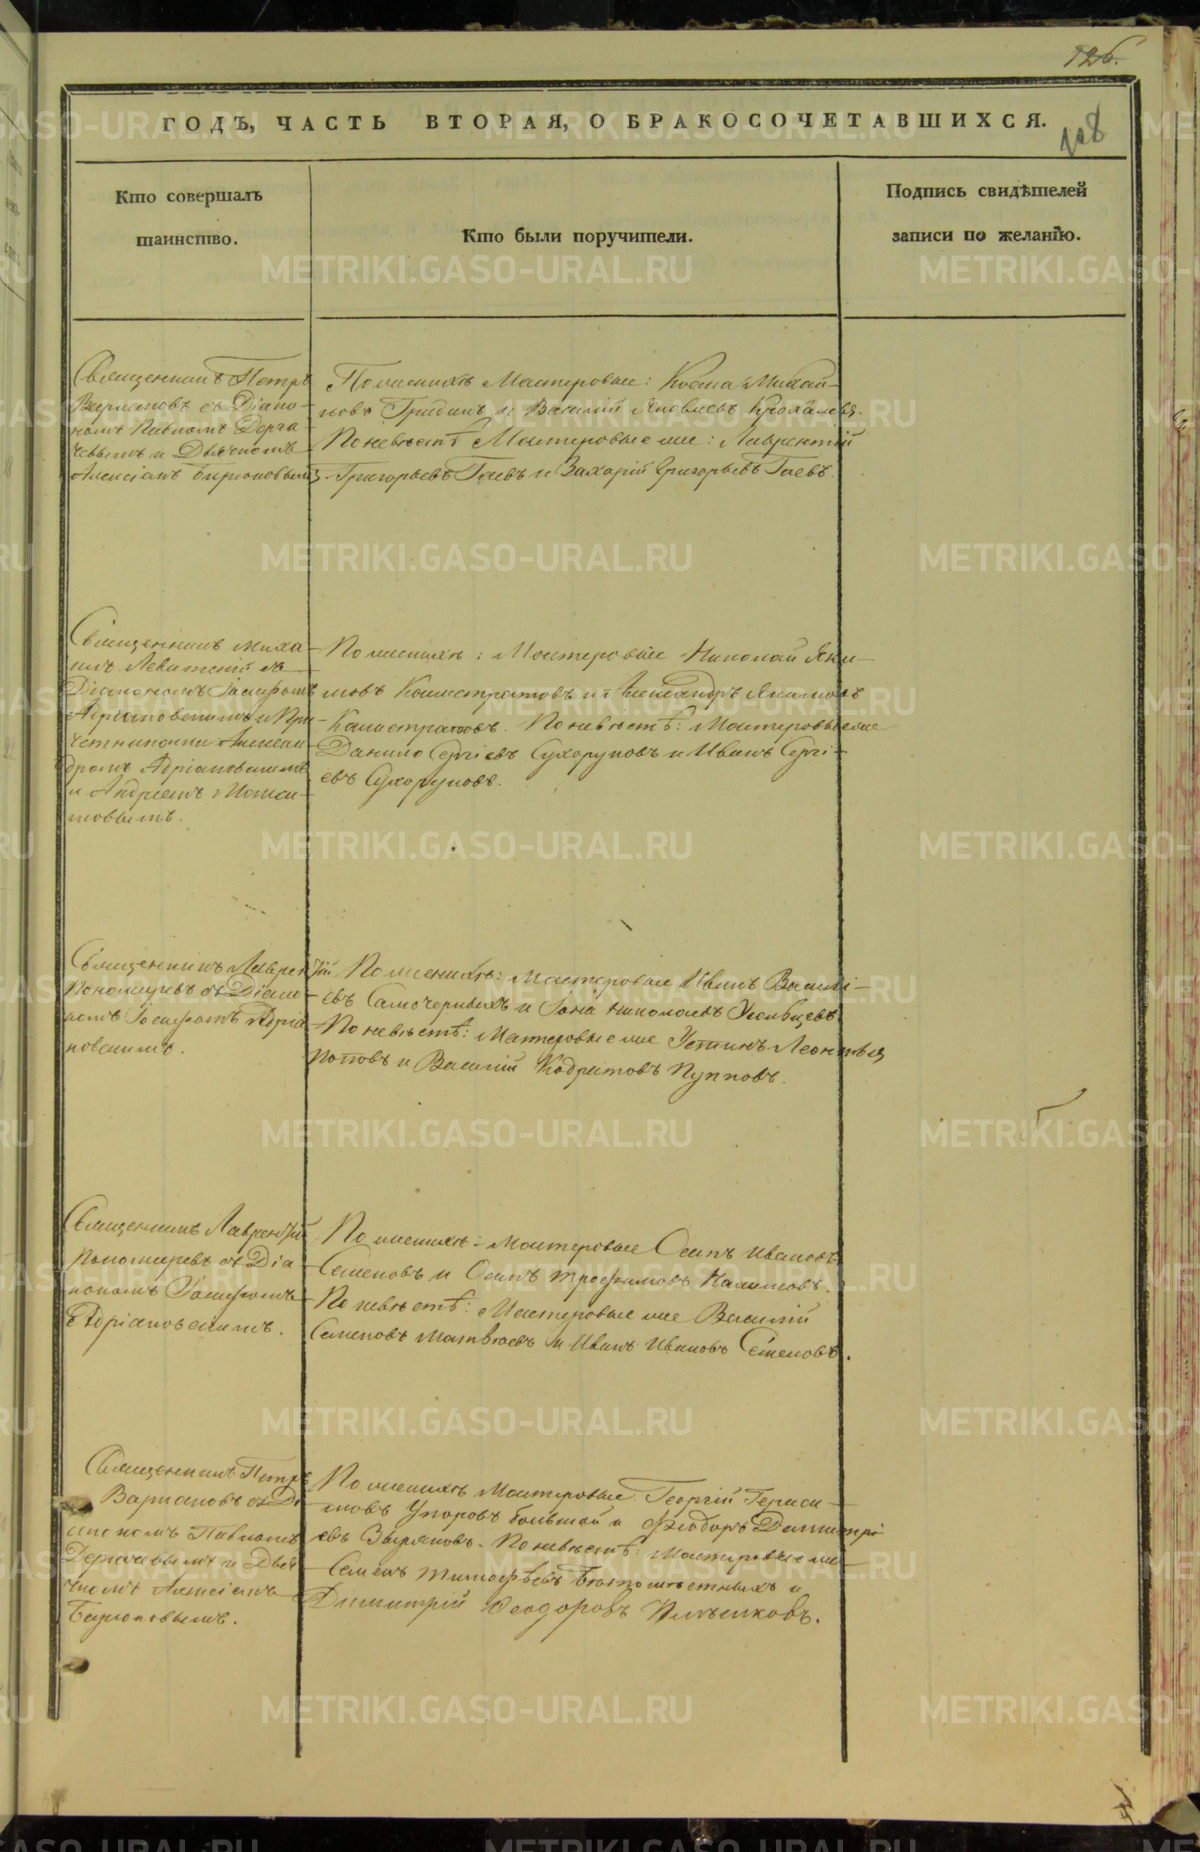 126.
ГОДЪ, ЧАСТЬ ВТОРАЯ, О БРАКОСОЧЕТАВШИХСЯ.
108
Кто совершалъ
таинство.
Кто были поручители.
Подпись свидѣтелей
записи по желанію.
Священникъ Петръ
съ Діако-
номъ Павломъ Дерга-
чевымъ и Дьячкомъ
Алексіемъ Бирюковымъ
По женихѣ Мастеровые: Косма Михай-
ловъ Гридинъ и Василий Яковлевъ
По невѣстѣ Мастеровые же: Лаврентій
Григорьевъ Гаевъ и Захарій Григорьевъ Гаевъ.
Священникъ Миха-
илъ Левитскій съ
Діакономъ Іосифомъ
Адріановскимъ и При-
четниками Алексан-
дромъ Адріановскимъ
и Андреемъ
По женихѣ: Мастеровые Николай Яки-
мовъ Калистратовъ и Александръ Якимовъ
Калистратовъ. По невѣстѣ: Мастеровые же
Данило Сергіевъ Сухоруковъ и Иванъ Сергі-
евъ Сухоруковъ.
Священникъ Лаврен-
тій Пономаревъ съ Діако-
номъ Іосифомъ Адріа-
новскимъ.
По женихѣ: Мастеровые Иванъ Василі-
евъ Самочерныхъ и Іона Николаевъ Усольцевъ
По невѣстѣ: Мастеровые же Устинъ Леонтьев
Потовъ и Василій Кодратовъ Пупковъ.
Священникъ Лаврентій
Пономаревъ съ Діа-
кономъ Іосифомъ
Адріановскимъ.
По женихѣ: Мастеровые Осипъ Ивановъ
Семеновъ и Осипъ Трофимовъ Налимовъ.
По невѣстѣ: Мастеровые же Василій
Семеновъ Матвѣевъ и Иванъ Ивановъ Семеновъ.
Священникъ Петръ
съ Ді-
акономъ Павломъ
Дергачевымъ и Дья-
чкомъ Алексіемъ
Бирюковымъ.
По женихѣ Мастеровые Георгій Гераси-
мовъ Упоровъ большой и Феодоръ Димитрі-
евъ Зыряновъ. По невѣстѣ: Мастеровые же
Семенъ Тимофѣевъ и
Димитрій Феодоровъ
METRIKI.GASO-URAL.RU